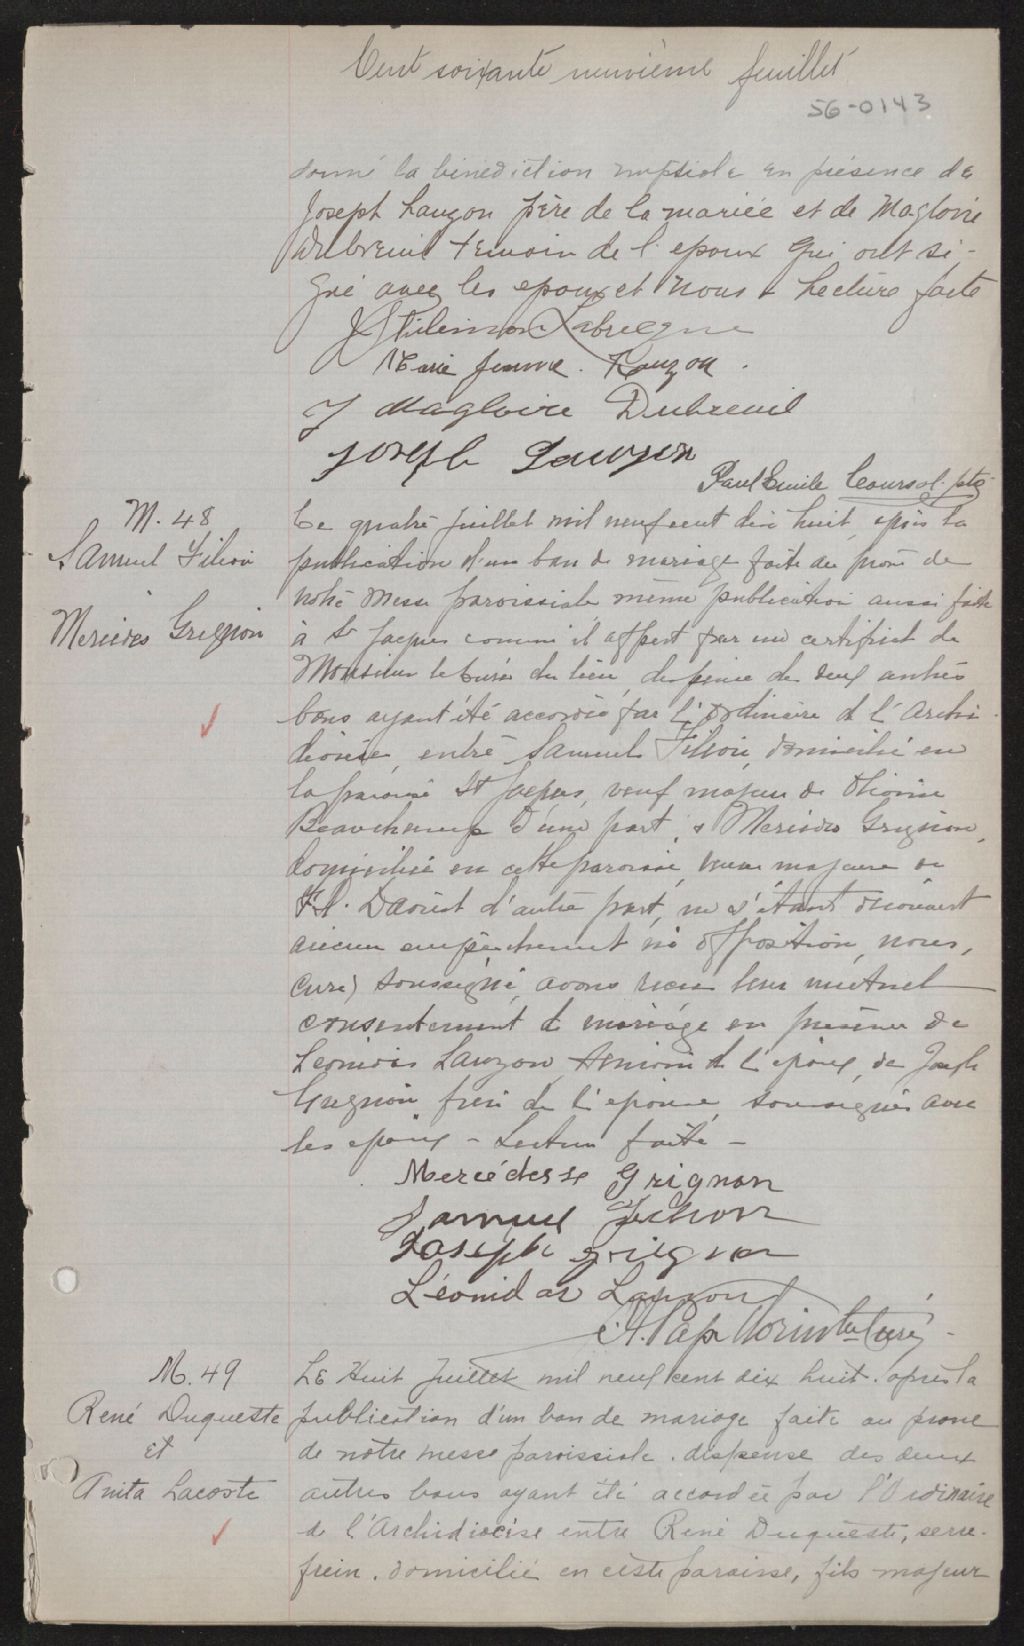 Cent soixante neuvième feuillet
56-0143
donné la bénédiction nuptiale en présence de
Joseph Lauzon père de la mariée et de Magloire
Dubreuil témoin de l'epoux qui ont si-
gné avec les epoux et nous Lecture faite
J Philemon Labrecque
Marie Jeanne Lauzon.
J Magloire Dubreuil
Joseph Lauzon
Paul Emile Coursol. ptre
M. 48
Samuel Filion
Mercédes Grignon
Le quatre juillet mil neuf cent dix huit, après la
publication d'un ban de mariage faite au prône de
notre messe paroissiale même publication aussi faite
à St Jacques comme il appert par un certificat de
Monsieur le Curé du lieu, dispense de deux autres
bans ayant été accordée par l'Ordinaire de l'Archi-
diocèse, entre Samuel Filion, domicilié en
la paroisse St Jacques, veuf majeur de
Beauchamp d'une part, & Mercédes Grignon,
domiciliée en cette paroisse, veuve majeure de
Daoust d'autre part, ne s'étant découvert
aucun empêchement ni opposition, nous,
curé soussigné, avons reçu leur mutuel
consentement de mariage en présence de
Leonidas Lauzon, témoin de l'époux, de Joseph
Grignon frère de l'epouse, soussignés avec
les epoux - Lecture faite -
Mercédesse Grignon
Samuel Filion
Joseph Grignon
Léonidas Lauzon
Morin ptre Curé -
M. 49
René Duqueste
et
Anita Lacoste
Le huit juillet mil neuf cent dix huit. après la
publication d'un ban de mariage faite au prone
de notre messe paroissiale. dispense des deux
autres bans ayant été accordée par l'Ordinaire
de l'Archidiocèse entre René Duqueste, serre-
frein. domicilié en cette paroisse, fils majeur